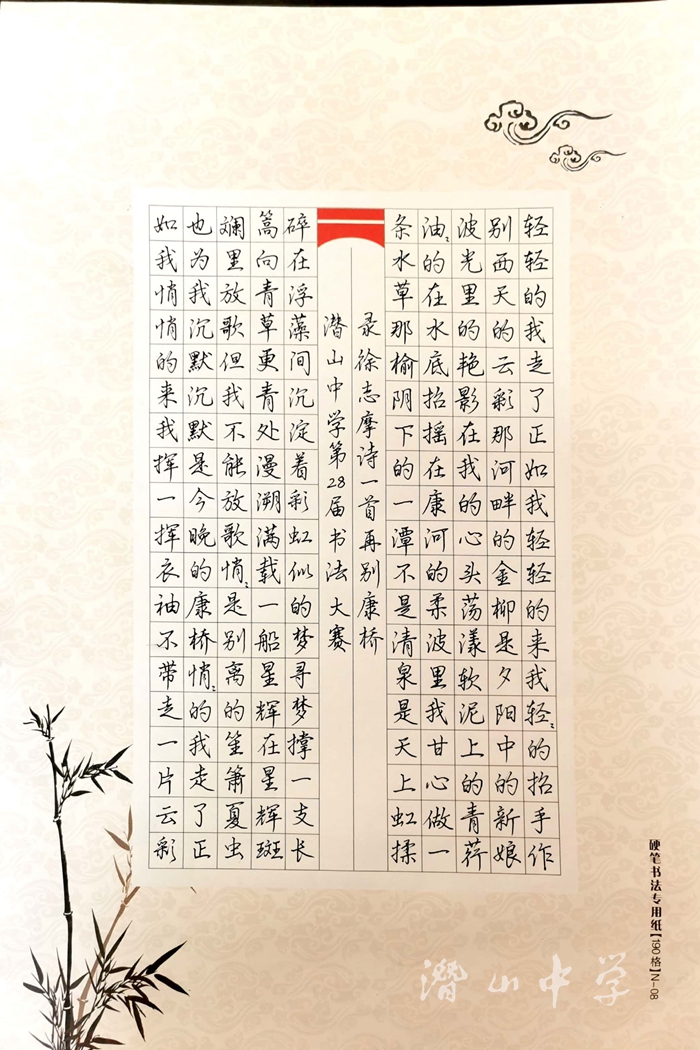 轻轻的我走了正如我轻轻的来我轻〻的招手作
别西天的云彩那河畔的金柳是夕阳中的新娘
波光里的艳影在我的心头荡漾软泥上的青荇
油〻的在水底招摇在康河的柔波里我甘心做一
条水草那榆阴下的一潭不是清泉是天上虹揉
录徐志摩诗一首再别康桥
潜山中学第28届书法大赛
碎在浮藻间沉淀着彩虹似的梦寻梦撑一支长
篙向青草更青处漫溯满载一船星辉在星辉斑
斓里放歌但我不能放歌悄〻是别离的笙箫夏虫
也为我沉默沉默是今晚的康桥悄〻的我走了正
如我悄悄的来我挥一挥衣袖不带走一片云彩
硬笔书法专用纸【190格】N-08
潜山中学